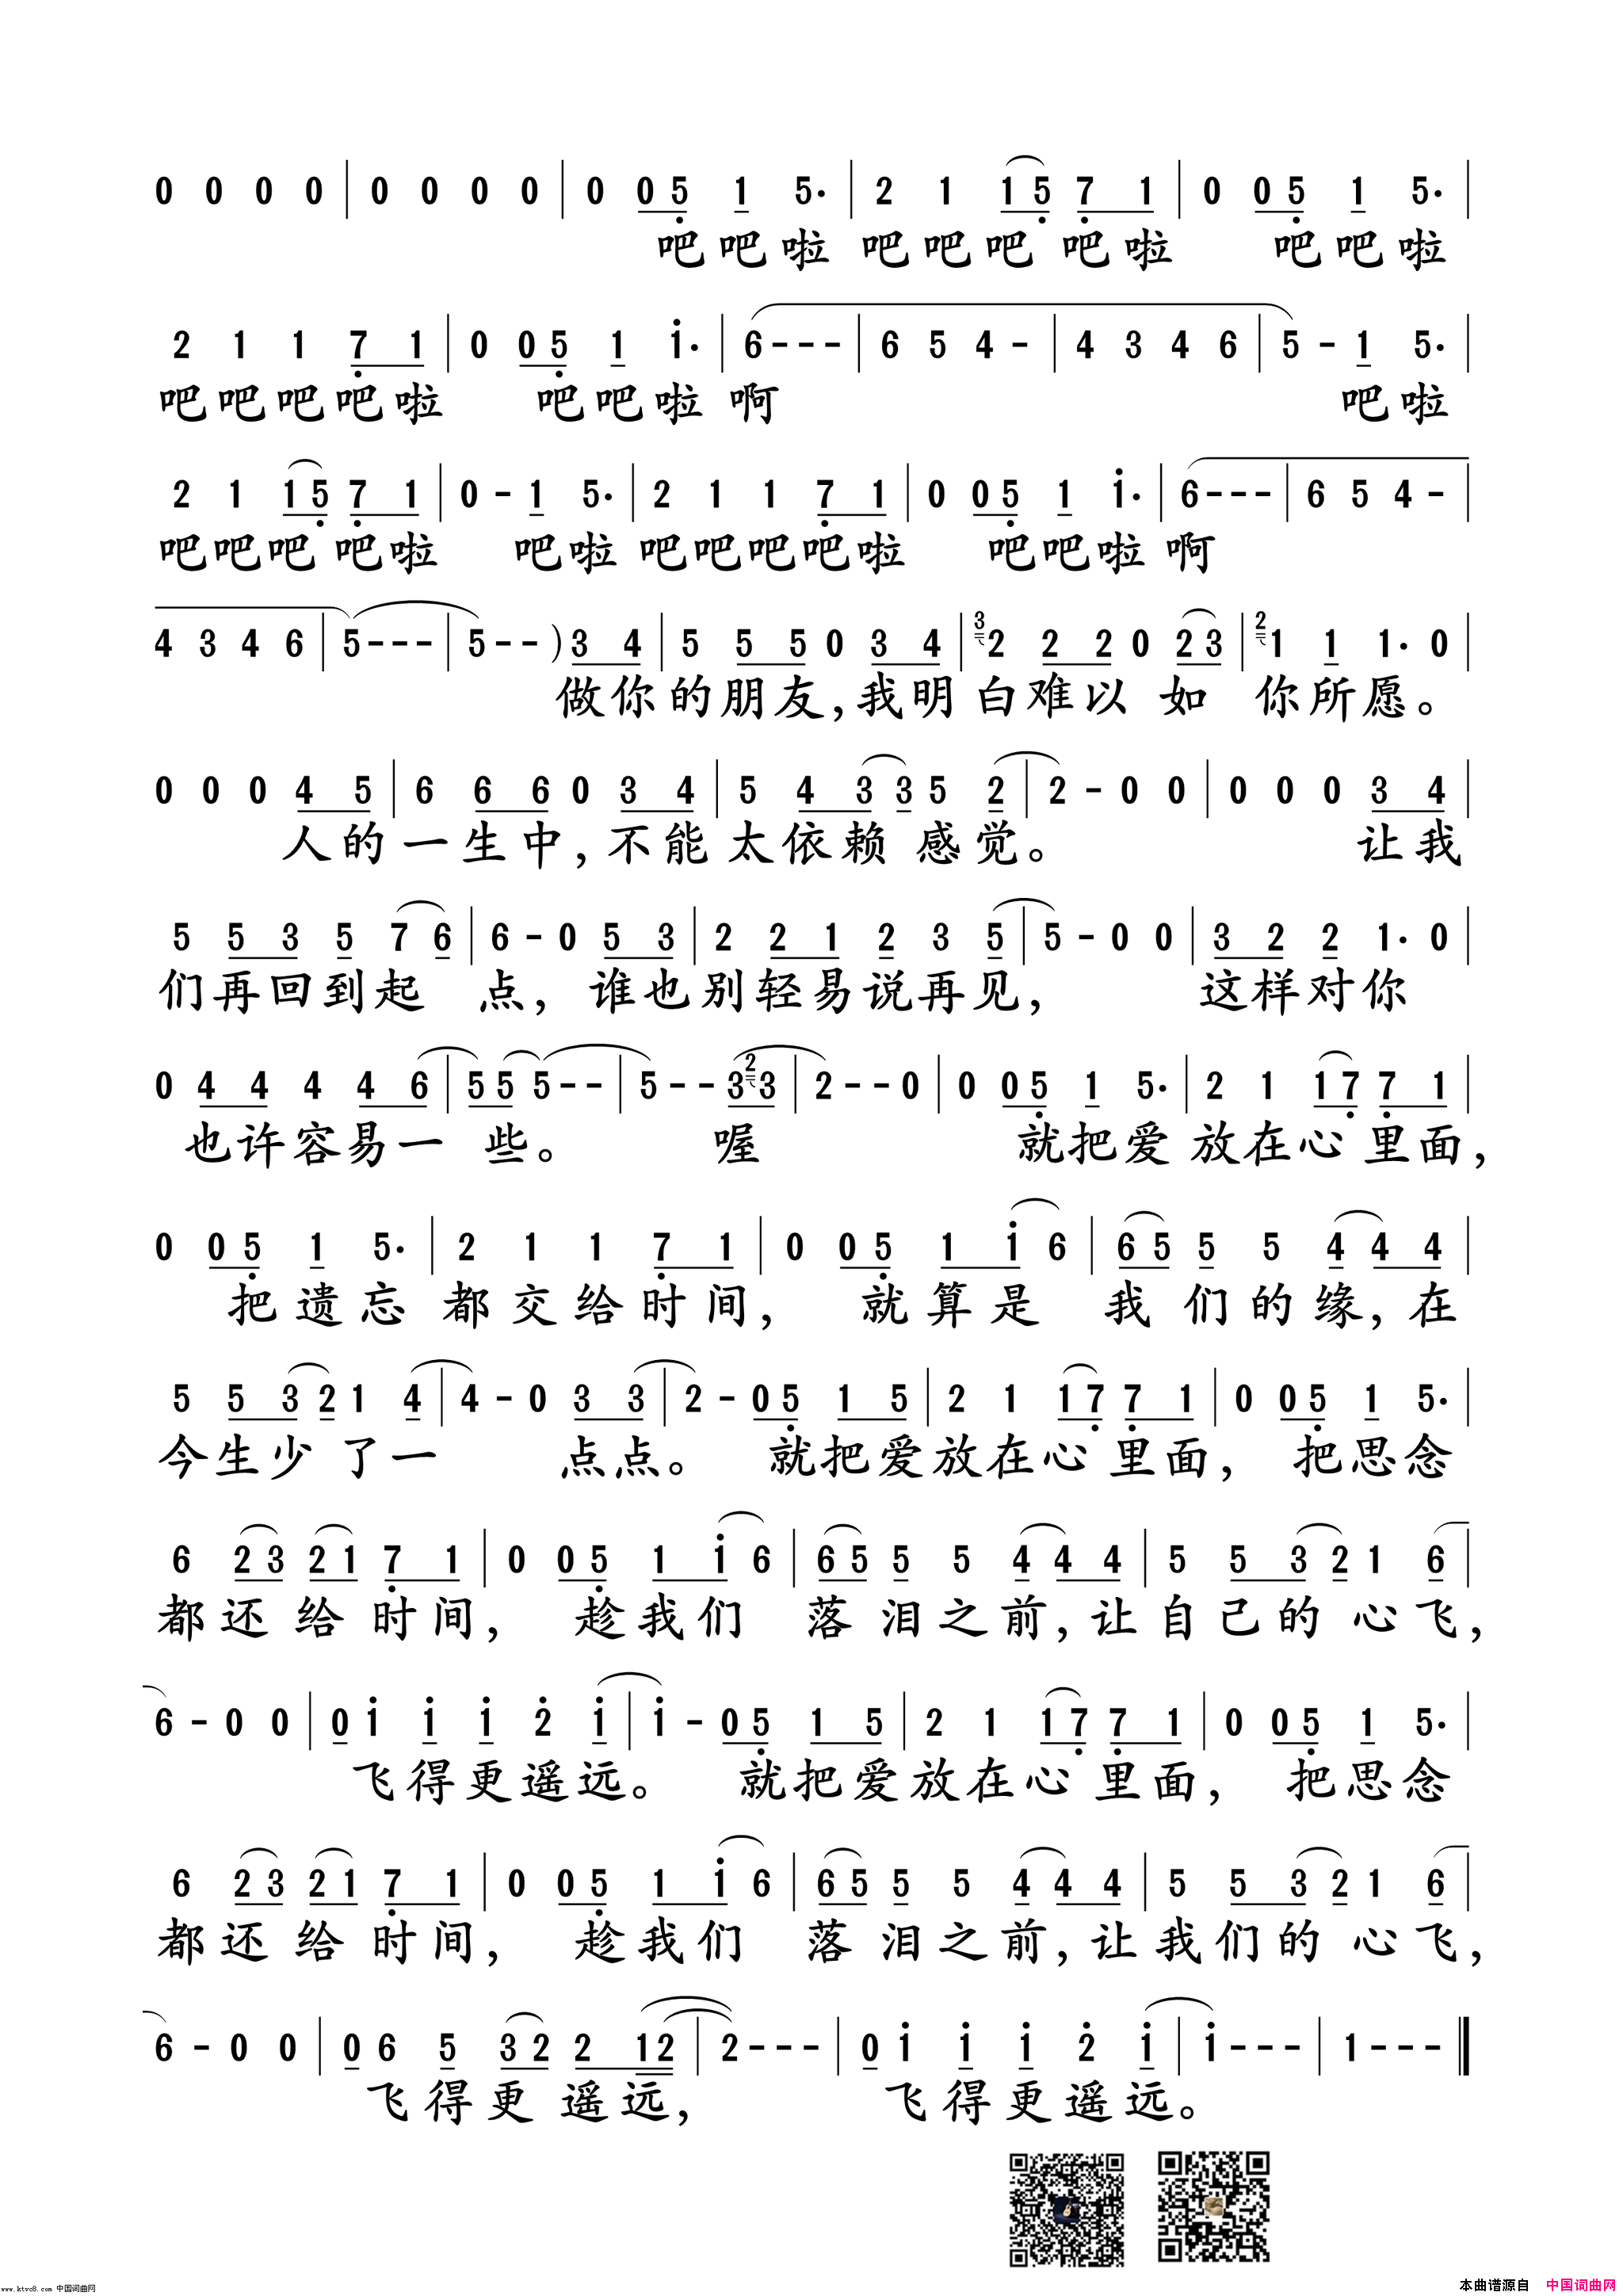 0 0 0 0 | 0 0 0 0 | 0 0 5 1 5· | 2 1 1 5 7 1 | 0 0 5 1 5· |
吧吧啦 吧吧吧 吧啦 吧吧啦
2 1 1 7 1 | 0 0 5 1 1· | 6 - - - | 6 5 4 - | 4 3 4 6 | 5 - 1 5· |
吧吧吧吧啦 吧吧啦 啊 吧啦
2 1 1 5 7 1 | 0 - 1 5· | 2 1 1 7 1 | 0 0 5 1 1· | 6 - - - | 6 5 4 - |
吧吧吧 吧啦 吧啦 吧吧吧吧啦 吧吧啦 啊
4 3 4 6 | 5 - - - | 5 - - ) 3 4 | 5 5 5 0 3 4 | 3 2 2 2 0 2 3 | 2 1 1 1· 0 |
做你的朋友,我明白难以 如 你所愿。
0 0 0 4 5 | 6 6 6 0 3 4 | 5 4 3 3 5 2 | 2 - 0 0 | 0 0 0 3 4 |
人的一生中,不能太依赖 感觉。 让我
5 5 3 5 7 6 | 6 - 0 5 3 | 2 2 1 2 3 5 | 5 - 0 0 | 3 2 2 1· 0 |
们再回到起 点, 谁也别轻易说再见, 这样对你
0 4 4 4 4 6 | 5 5 5 - - | 5 - - 3 2 3 | 2 - - 0 | 0 0 5 1 5· | 2 1 1 7 7 1 |
也许容易一 些。 喔 就把爱 放在心 里面,
0 0 5 1 5· | 2 1 1 7 1 | 0 0 5 1 1 6 | 6 5 5 5 4 4 4 |
把遗忘 都交给时间, 就算是 我们的缘,在
5 5 3 2 1 4 | 4 - 0 3 3 | 2 - 0 5 1 5 | 2 1 1 7 7 1 | 0 0 5 1 5· |
今生少了一 点点。 就把爱放在心 里面, 把思念
6 2 3 2 1 7 1 | 0 0 5 1 1 6 | 6 5 5 5 4 4 4 | 5 5 3 2 1 6 |
都还给时间, 趁我们 落泪之前,让自己的心飞,
6 - 0 0 | 0 1 1 1 2 1 | 1 - 0 5 1 5 | 2 1 1 7 7 1 | 0 0 5 1 5· |
飞得更遥远。 就把爱放在心 里面, 把思念
6 2 3 2 1 7 1 | 0 0 5 1 1 6 | 6 5 5 5 4 4 4 | 5 5 3 2 1 6 |
都还给时间, 趁我们 落泪之前,让我们的心飞,
6 - 0 0 | 0 6 5 3 2 2 1 2 | 2 - - - | 0 1 1 1 2 1 | 1 - - - | 1 - - - ‖
飞得更 遥远, 飞得更遥远。
www.ktvc8.com 中国词曲网
本曲谱源自 中国词曲网